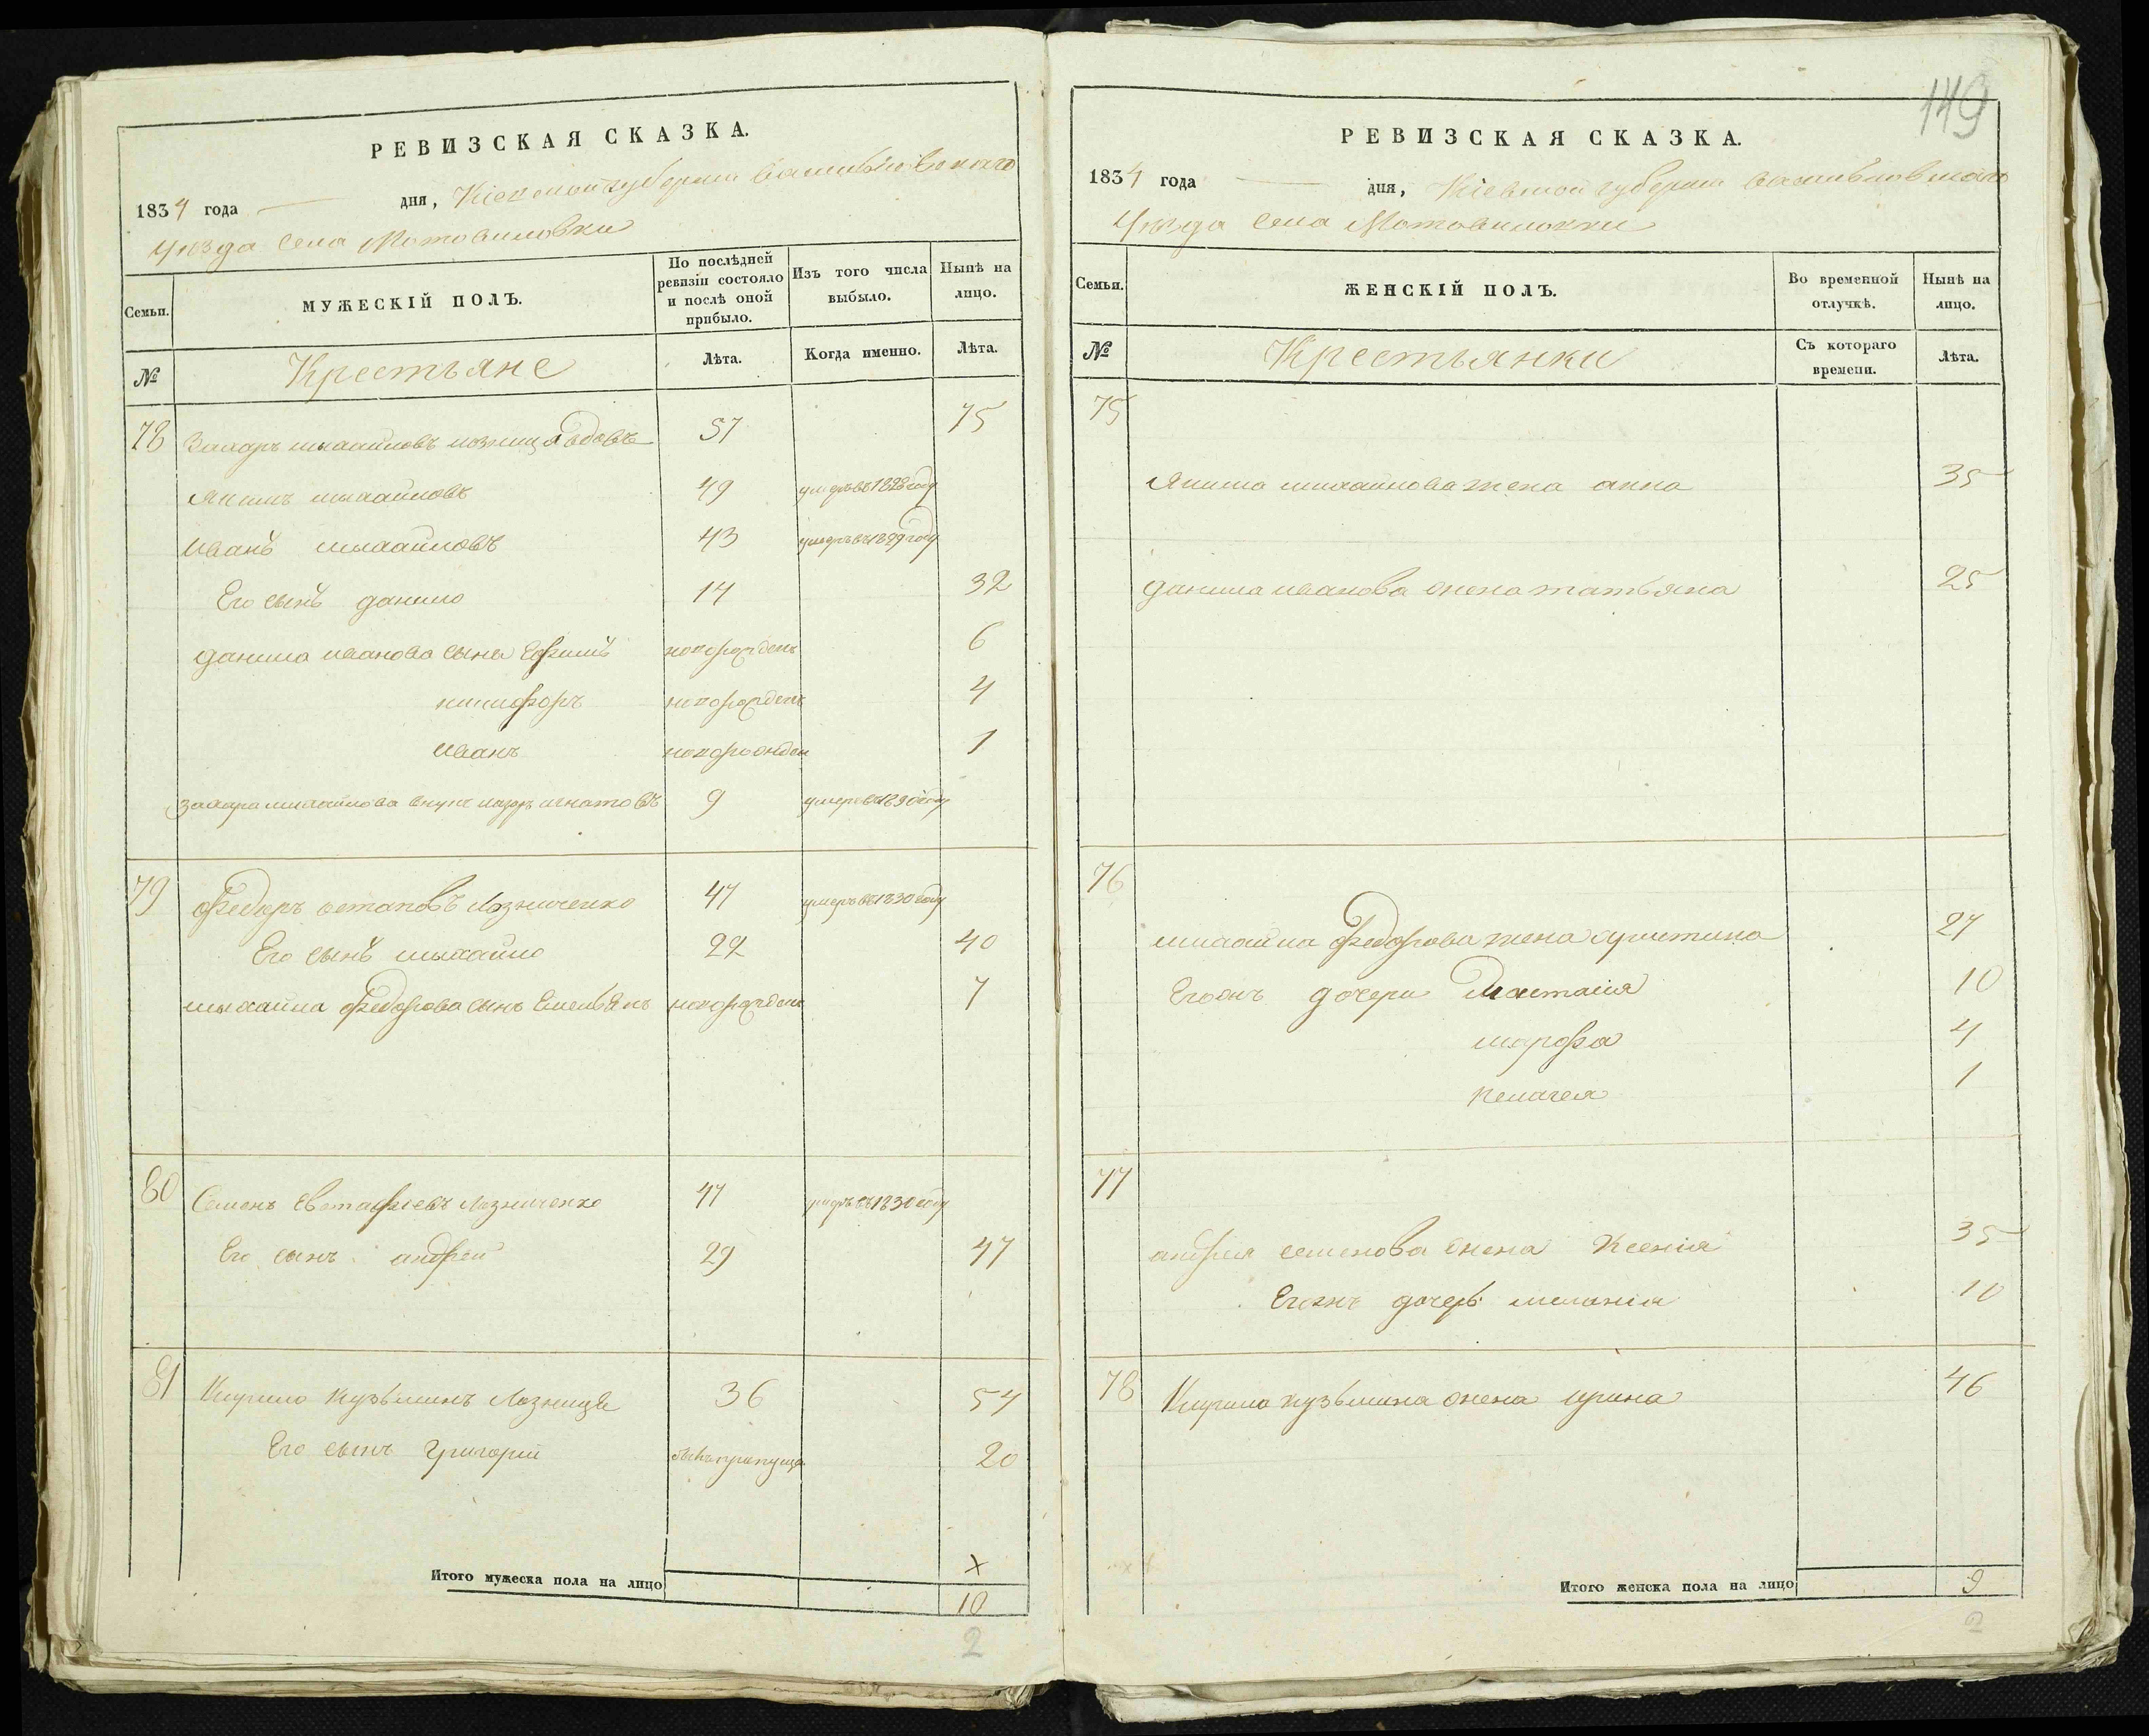 РЕВИЗСКАЯ СКАЗКА.
1834 года дня, Кіевской губерніи Васильковскаго
Уѣзда Села Мотовиловки
Семьи. МУЖЕСКІЙ ПОЛЪ. По послѣдней ревизіи состояло и послѣ оной прибыло. Изъ того числа выбыло. Нынѣ на лицо.
№ Крестьяне Лѣта. Когда именно. Лѣта.
78 Захаръ михайловъ лозница вдовъ 57 75
Якимъ михайловъ 49 умеръ въ 1828 году
Иванъ михайловъ 43 умеръ въ 1829 году
Его сынъ данило 14 32
данила иванова сыны Ефимъ новорожденъ 6
никифоръ новорожденъ 4
Иванъ новорожденъ 1
захара михайлова внукъ лазоръ игнатовъ 9 умеръ въ 1830 году
79 Федоръ остаповъ Лозниченко 47 умеръ въ 1830 году
Его сынъ михайло 22 40
михайла Федорова сынъ Емельянъ новорожденъ 7
80 Семенъ Евстафіевъ Лозниченко 47 умеръ въ 1830 году
Его сынъ андрей 29 47
81 Кирило Кузьминъ Лозница 36 54
Его сынъ Григорій 20
Итого мужеска пола на лицо 10
2
149
РЕВИЗСКАЯ СКАЗКА.
1834 года дня, Кіевской губерніи Васильковскаго
Уѣзда Села Мотовиловки
Семьи. ЖЕНСКІЙ ПОЛЪ. Во временной отлучкѣ. Нынѣ на лицо.
№ Крестьянки Съ котораго времени. Лѣта.
75
Якима михайлова жена анна 35
данила иванова жена татьяна 25
76
михайла Федорова жена христина 27
Егожъ дочери Настасія 10
марфа 4
пелагея 1
77
андрея семенова жена Ксенія 35
Егожъ дочерь меланія 10
78 Кирила кузьмина жена Ирина 46
Итого женска пола на лицо 9
2